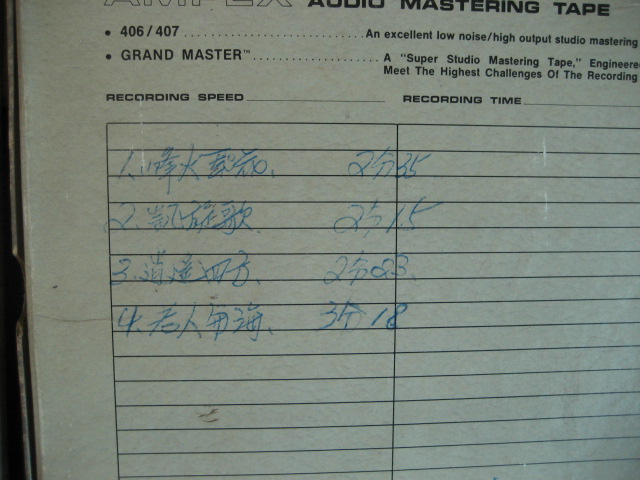 AMPEX AUDIO MASTERING TAPE
• 406/407 An excellent low noise/high output studio mastering
• GRAND MASTER™ A "Super Studio Mastering Tape," Engineere
Meet The Highest Challenges Of The Recording
RECORDING SPEED RECORDING TIME
1. 烽火 2分35
2. 凱旋歌 2分15
3. 逍遥四方 2分23
4. 老人与海 3分18